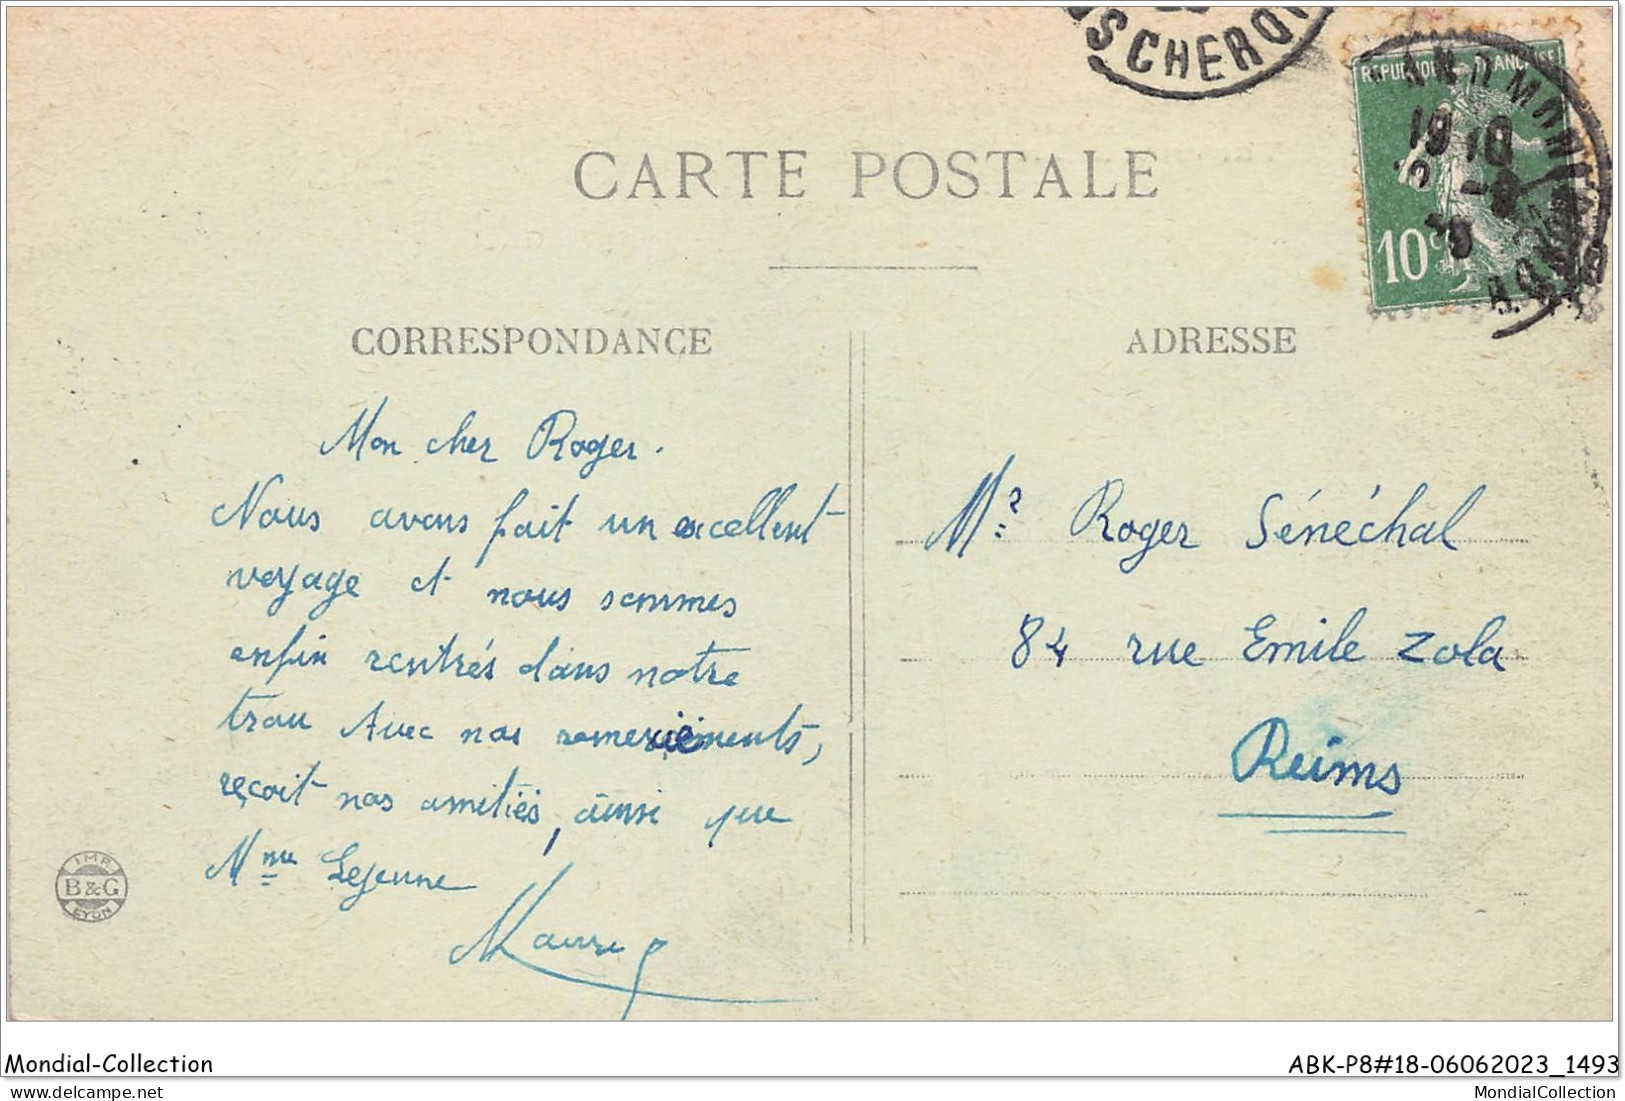 SCHERO
REPUBLIQUE FRANÇAISE
10c
CARTE POSTALE
CORRESPONDANCE
Mon cher Roger.
Nous avons fait un excellent
voyage et nous sommes
enfin rentrés dans notre
trou Avec nos remerciements,
reçoit nos amitiés, ainsi que
Mme Lejeune
ADRESSE
Mr Roger Sénéchal
84 rue Emile Zola
Reims
IMP.
B & G
LYON
Mondial-Collection
ABK-P8#18-06062023_1493
MondialCollection